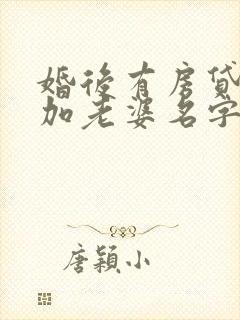 婚後有房貸
加老婆名字
唐穎小